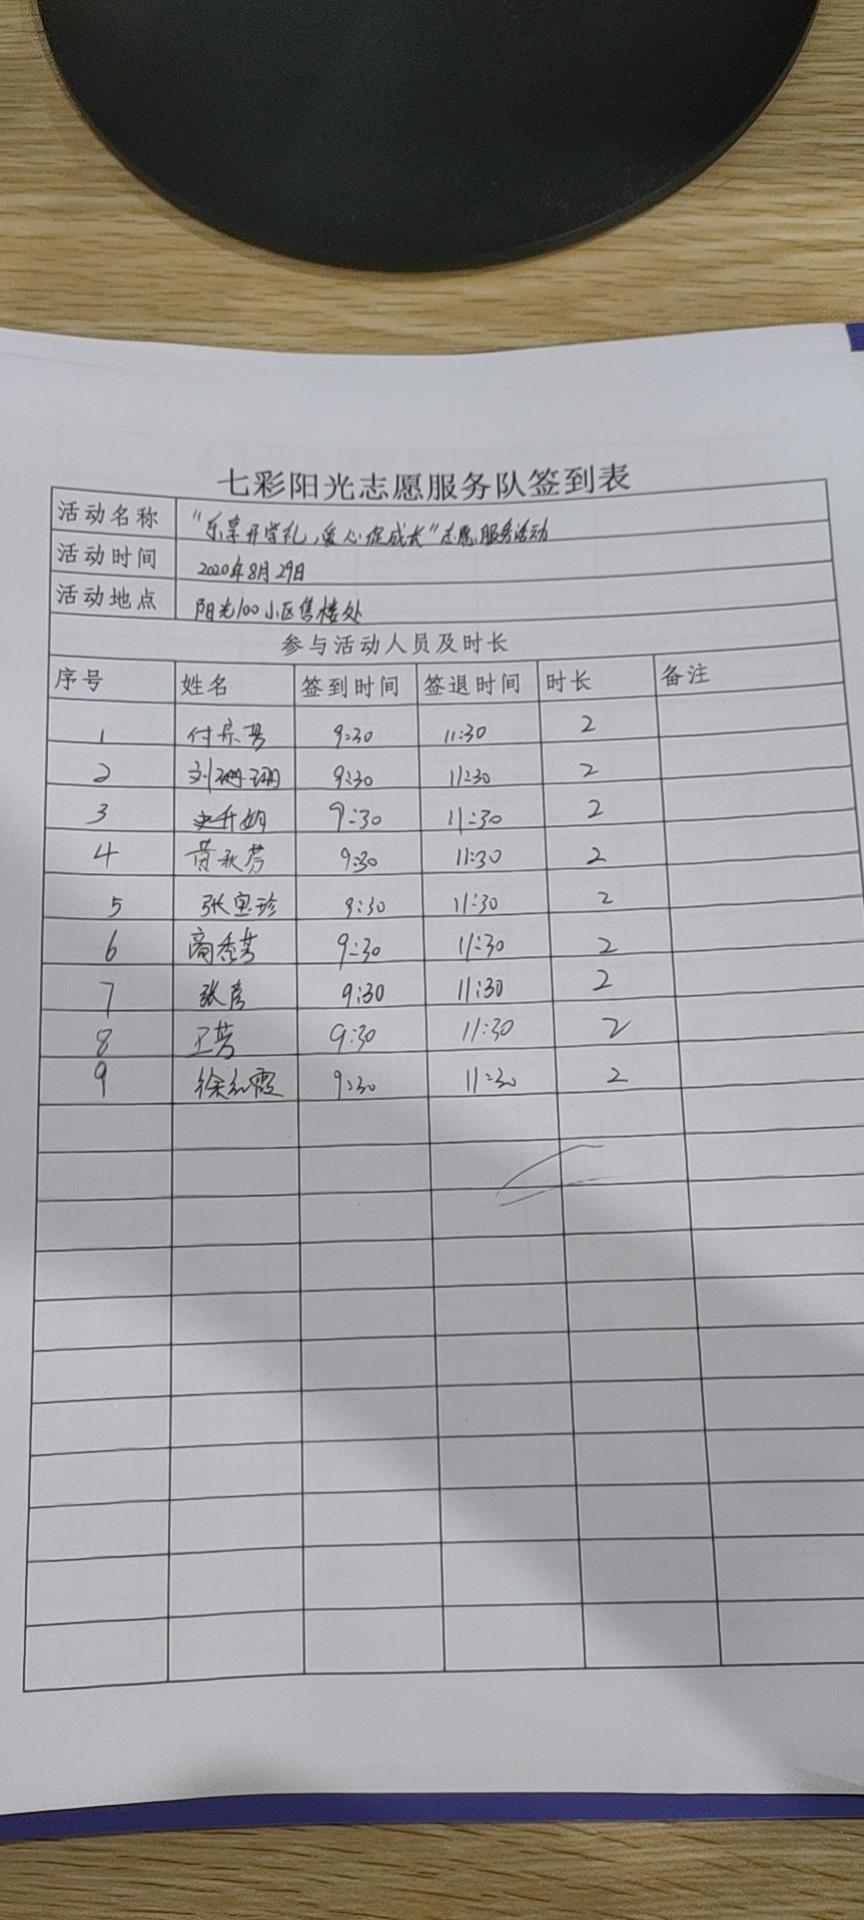 七彩阳光志愿服务队签到表
活动名称 "乐享开学礼,爱心促成长"志愿服务活动
活动时间 2020年8月29日
活动地点 阳光100小区售楼处
参与活动人员及时长
序号 姓名 签到时间 签退时间 时长 备注
1 9:30 11:30 2
2 刘珊珊 9:30 11:30 2
3 9:30 11:30 2
4 黄秋芳 9:30 11:30 2
5 张宝珍 9:30 11:30 2
6 高秀芳 9:30 11:30 2
7 张彦 9:30 11:30 2
8 卫芳 9:30 11:30 2
9 徐红霞 9:30 11:30 2